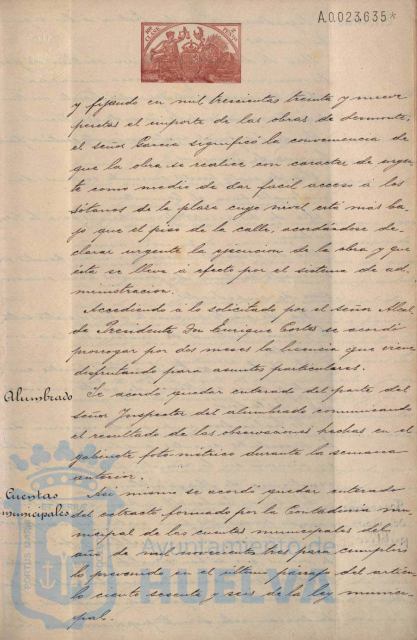 A.0.023.635*
y fijando en mil trescientas treinta y nueve
pesetas el importe de las obras de desmonte,
el señor García significó la conveniencia de
que la obra se realice con caracter de urgen-
te como medio de dar facil acceso á los
sótanos de la plaza cuyo nivel está más ba-
jo que el piso de la calle, acordándose de-
clarar urgente la ejecucion de la obra y que
ésta se lleve á efecto por el sistema de ad-
ministracion.
Accediendo á lo solicitado por el señor Alcal-
de Presidente Don Enrique Cortes se acordó
prorrogar por dos meses la licencia que viene
disfrutando para asuntos particulares.
Alumbrado Se acordó quedar enterado del parte del
señor Inspector del alumbrado comunicando
el resultado de las observaciones hechas en el
gabinete fotométrico durante la semana
anterior.
Cuentas Asi mismo se acordó quedar enterado
municipales del extracto formado por la Contaduria mu-
nicipal de las cuentas municipales del
año de mil novecientos tres para cumplir
lo prevenido en el último párrafo del articu-
lo ciento sesenta y seis de la ley munici-
pal.
Ayuntamiento de
HUELVA